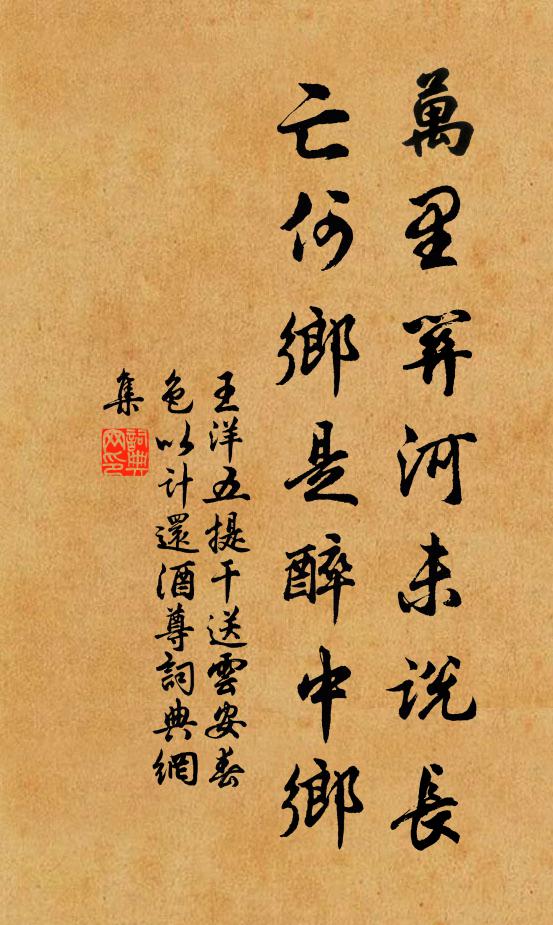 萬里關河未說長
亡何鄉是醉中鄉
王洋五提干送雲安春
色以計還酒尊詞典網
集
詞典網印